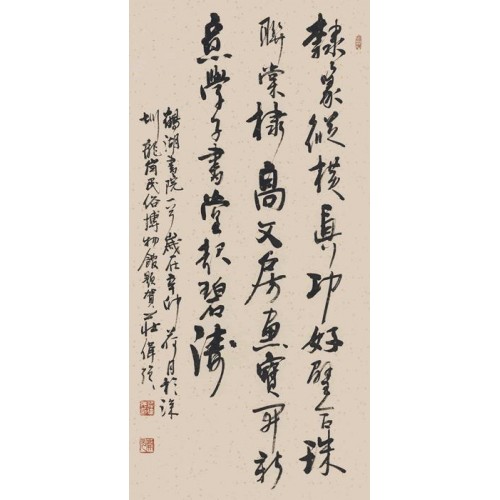 隸篆縱橫真功好璧合珠
聯棠棣高文房惠寶開新
意學子書堂起碧濤
鶴湖書院一歲在辛卯荷月於深
圳龍崗民俗博物館題賀莊偉強